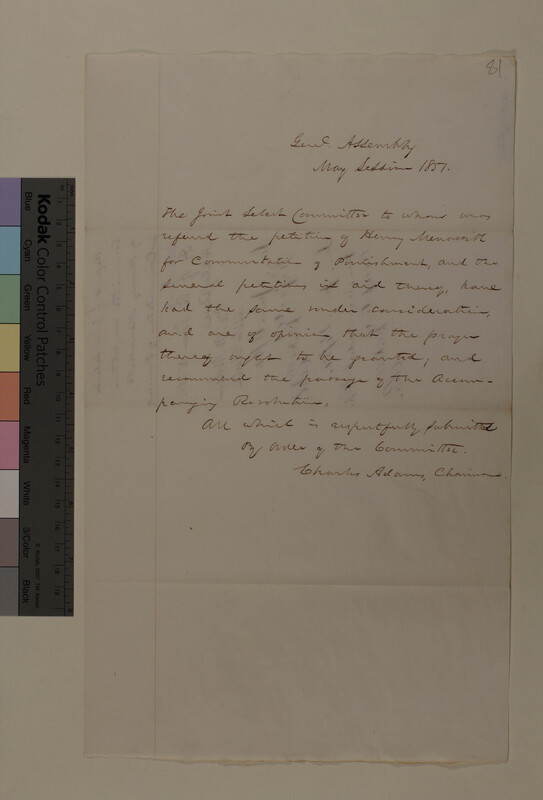 81
Genl. Assembly
May Session 1851.
The Joint Select Committee to whom was
referred the petition of Henry
for Commutation of Punishment, and the
several petitions in aid thereof, have
had the same under consideration,
and are of opinion that the prayer
thereof ought to be granted; and
recommend the passage of the Accom-
panying Resolution.
All which is respectfully submitted
By order of the Committee.
Charles Adams, Chairman.
Kodak Color Control Patches
Blue
Cyan
Green
Yellow
Red
Magenta
White
3/Color
Black